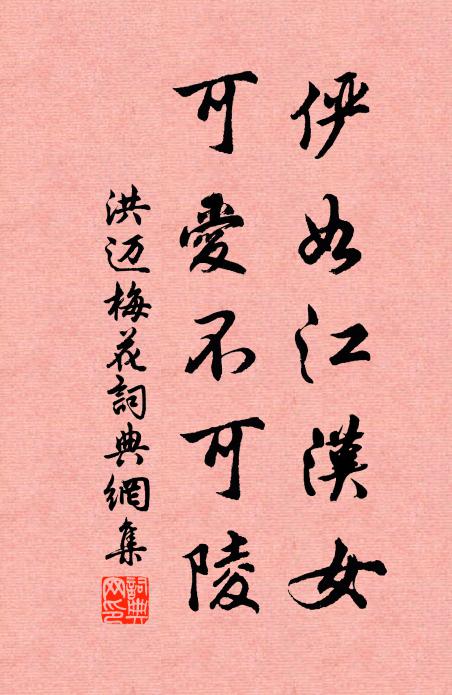 俨如江漢女
可愛不可陵
洪迈梅花詞典網集
詞典网印